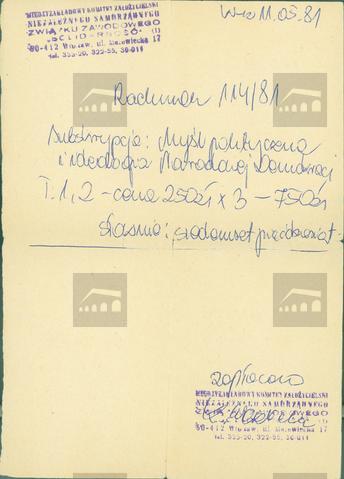 MIĘDZYZAKŁADOWY KOMITET ZAŁOŻYCIELSKI
NIEZALEŻNEGO SAMORZĄDNEGO
ZWIĄZKU ZAWODOWEGO
"SOLIDARNOŚĆ" (1)
50-412 Wrocław, ul. Mazowiecka 17
W-w 11.05.81
Rachunek 114/81
Subskrypcja: Myśl polityczna
i ideologia Narodowej Demokracji
T. 1, 2 - cena 250zł x 3 - 750zł
słownie: siedemset pięćdziesiąt
zapłacono
MIĘDZYZAKŁADOWY KOMITET ZAŁOŻYCIELSKI
NIEZALEŻNEGO SAMORZĄDNEGO
ZWIĄZKU ZAWODOWEGO
50-412 Wrocław, ul. Mazowiecka 17